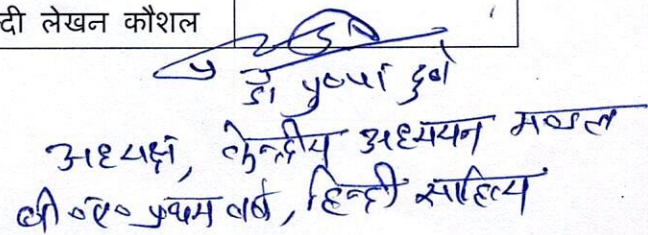 दी लेखन कौशल
डॉ पुष्पा दुबे
अध्यक्ष, केन्द्रीय अध्ययन मण्डल
बी०ए० प्रथम वर्ष, हिन्दी साहित्य